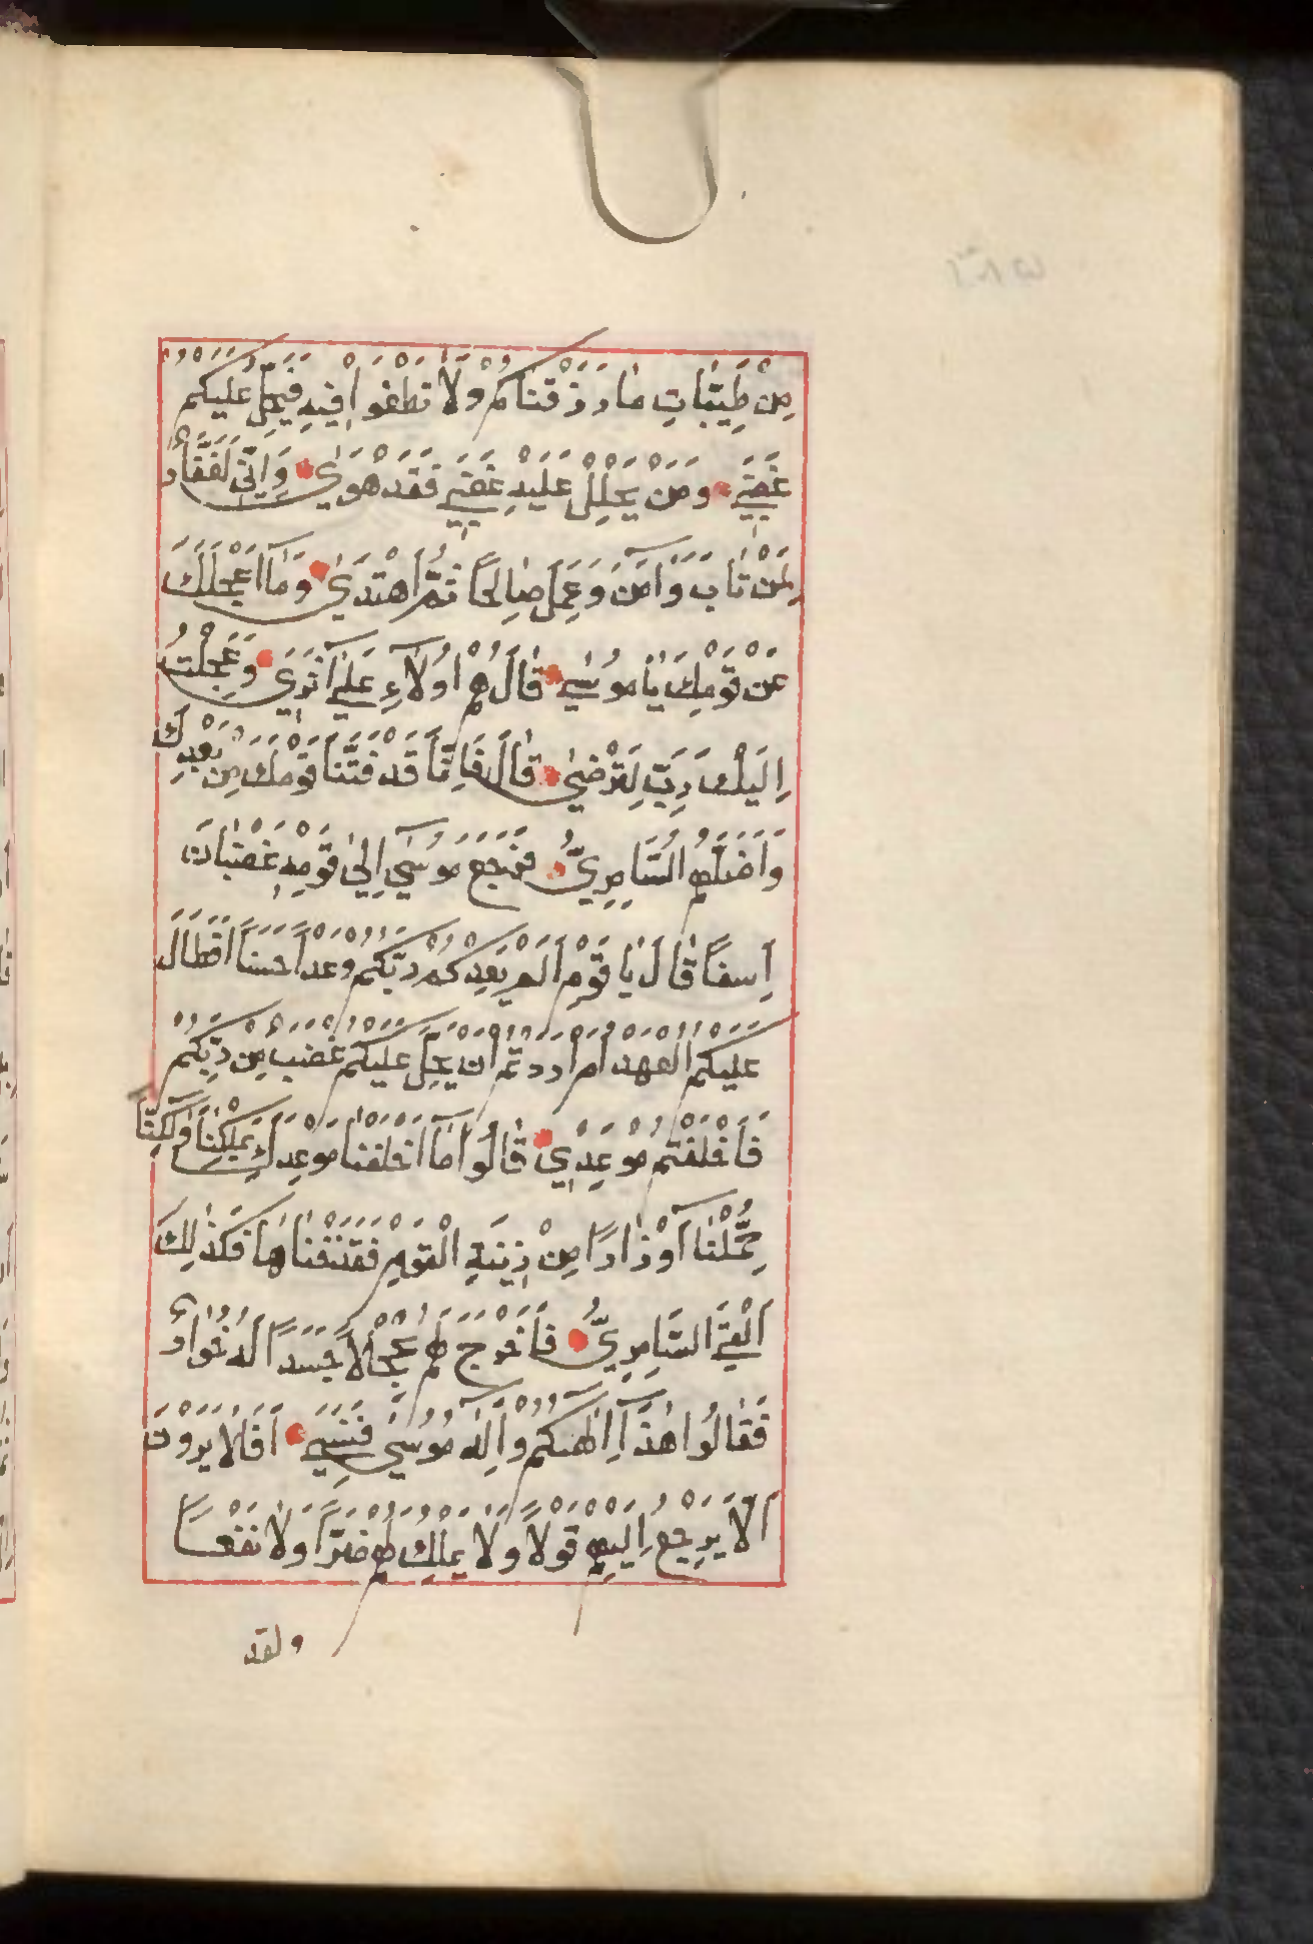 مِنْ طَيِّبَاتِ مَا رَزَقْنَاكُمْ وَلَا تَطْغَوْا فِيهِ فَيَحِلَّ عَلَيْكُمْ
غَضَبِي وَمَنْ يَحْلِلْ عَلَيْهِ غَضَبِي فَقَدْ هَوَىٰ وَإِنِّي لَغَفَّارٌ
لِمَنْ تَابَ وَآمَنَ وَعَمِلَ صَالِحًا ثُمَّ اهْتَدَىٰ وَمَا أَعْجَلَكَ
عَنْ قَوْمِكَ يَا مُوسَىٰ قَالَ هُمْ أُولَاءِ عَلَىٰ أَثَرِي وَعَجِلْتُ
إِلَيْكَ رَبِّ لِتَرْضَىٰ قَالَ فَإِنَّا قَدْ فَتَنَّا قَوْمَكَ مِنْ بَعْدِكَ
وَأَضَلَّهُمُ السَّامِرِيُّ فَرَجَعَ مُوسَىٰ إِلَىٰ قَوْمِهِ غَضْبَانَ
أَسِفًا قَالَ يَا قَوْمِ أَلَمْ يَعِدْكُمْ رَبُّكُمْ وَعْدًا حَسَنًا أَفَطَالَ
عَلَيْكُمُ الْعَهْدُ أَمْ أَرَدْتُمْ أَنْ يَحِلَّ عَلَيْكُمْ غَضَبٌ مِنْ رَبِّكُمْ
فَأَخْلَفْتُمْ مَوْعِدِي قَالُوا مَا أَخْلَفْنَا مَوْعِدَكَ بِمَلْكِنَا وَلَٰكِنَّا
حُمِّلْنَا أَوْزَارًا مِنْ زِينَةِ الْقَوْمِ فَقَذَفْنَاهَا فَكَذَٰلِكَ
أَلْقَى السَّامِرِيُّ فَأَخْرَجَ لَهُمْ عِجْلًا جَسَدًا لَهُ خُوَارٌ
فَقَالُوا هَٰذَا إِلَٰهُكُمْ وَإِلَٰهُ مُوسَىٰ فَنَسِيَ أَفَلَا يَرَوْنَ
أَلَّا يَرْجِعُ إِلَيْهِمْ قَوْلًا وَلَا يَمْلِكُ لَهُمْ ضَرًّا وَلَا نَفْعًا
ولقد